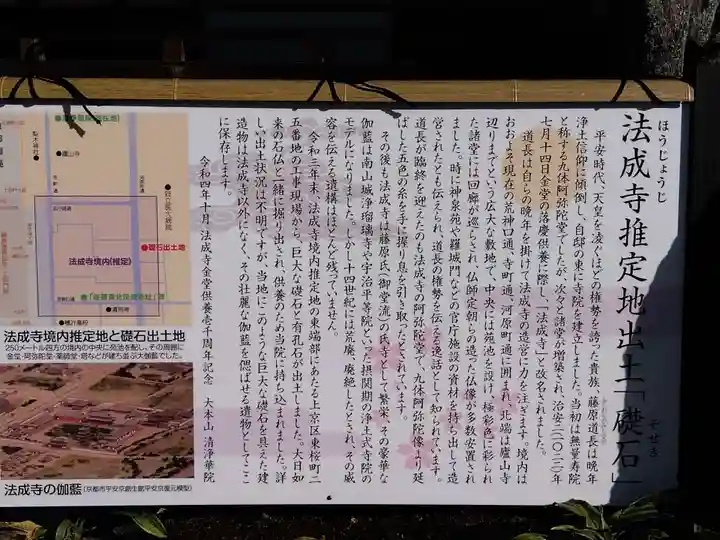 ほうじょうじ
そせき
法成寺推定地出土「礎石」
平安時代、天皇を凌ぐほどの権勢を誇った貴族、藤原道長は晩年
浄土信仰に傾倒し、自邸の東に寺院を建立しました。当初は無量寿院
と称する九体阿弥陀堂でしたが、次々と諸堂が増築され、治安二(一〇二二)年
七月十四日金堂の落慶供養に際し、「法成寺」と改名されました。
道長は自らの晩年を掛けて法成寺の造営に力を注ぎます。境内は
おおよそ現在の荒神口通、寺町通、河原町通に囲まれ、北端は廬山寺
辺りまでという広大な敷地で、中央には苑池を設け、極彩色に彩られ
た諸堂には回廊が巡らされ、仏師定朝らの造った仏像が多数安置され
ました。時に神泉苑や羅城門などの官庁施設の資材を持ち出して造
営されたとも伝えられ、道長の権勢を伝える逸話として知られています。
道長が臨終を迎えたのも法成寺の阿弥陀堂で、九体阿弥陀像より延
ばした五色の糸を手に握り息を引き取ったとされています。
その後も法成寺は藤原氏(御堂流)の氏寺として繁栄、その豪華な
伽藍は南山城浄瑠璃寺や宇治平等院といった摂関期の浄土式寺院の
モデルになりました。しかし十四世紀には荒廃、廃絶したとされ、その威
容を伝える遺構はほとんど残っていません。
令和三年末、法成寺境内推定地の東端部にあたる上京区東桜町二
五番地の工事現場から、巨大な礎石と有孔石が出土しました。大日如
来の石仏と一緒に掘り出され、供養のため当院に持ち込まれました。詳
しい出土状況は不明ですが、当地にこのような巨大な礎石を具えた建
造物は法成寺以外になく、その壮麗な伽藍を偲ばせる遺物としてここ
に保存します。
令和四年十月 法成寺金堂供養壱千周年記念 大本山 清浄華院
梨木神社
廬山寺
礎石出土地
法成寺境内(推定)
法成寺境内推定地と礎石出土地
250メートル四方の境内の中央に苑池を配し、その周囲に
金堂・阿弥陀堂・薬師堂・塔などが建ち並ぶ大伽藍でした。
法成寺の伽藍(京都市平安京創生館平安京復元模型)